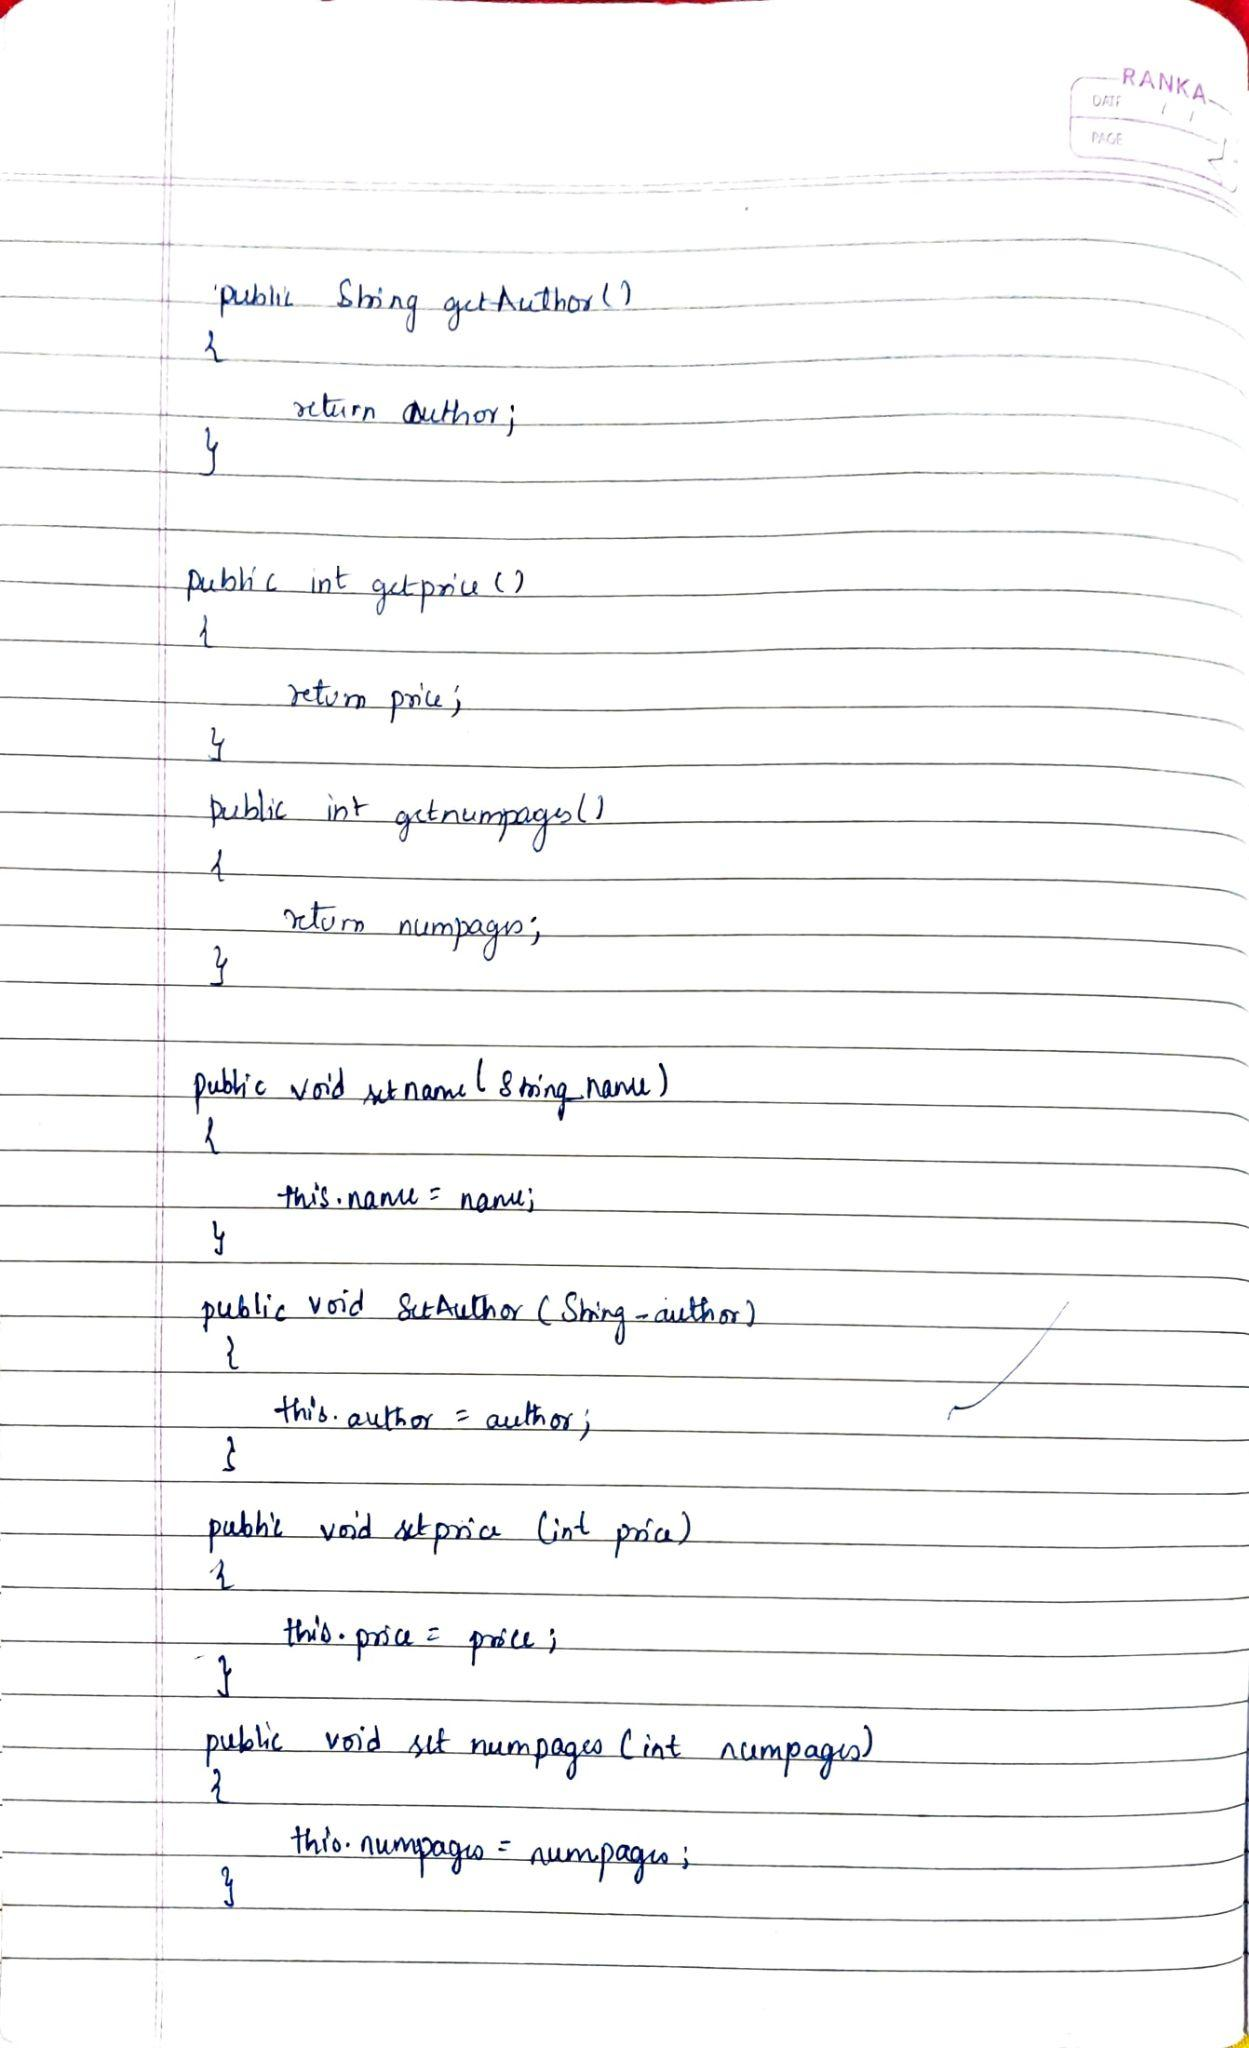 RANKA
DATE / /
PAGE
public String getAuthor()
{
return author;
}
public int getprice()
{
return price;
}
public int getnumpages()
{
return numpages;
}
public void setname(String name)
{
this.name = name;
}
public void SetAuthor (String - author)
{
this.author = author;
}
public void setprice (int price)
{
this.price = price;
}
public void set numpages (int numpages)
{
this.numpages = numpages;
}